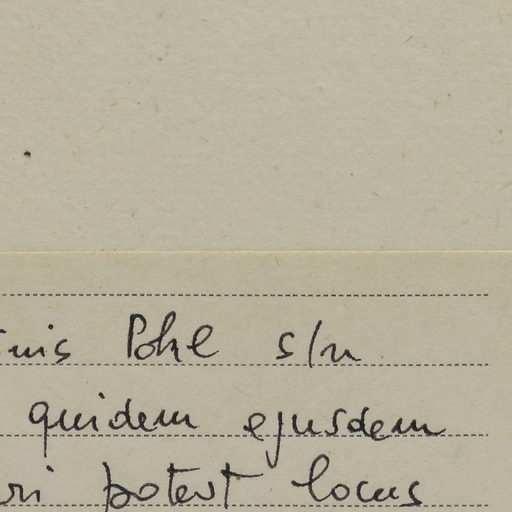 Pohl s/n
quidem ejusdem
potest locus